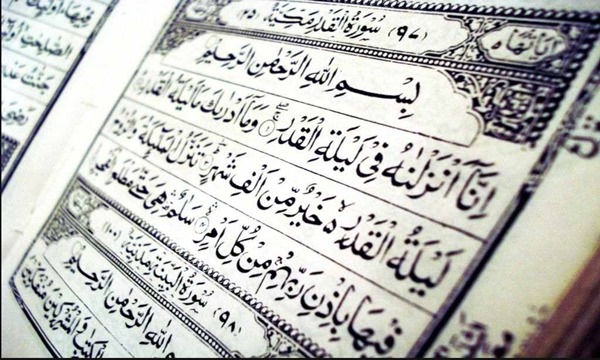 (٩٧) سُوْرَةُ الْقَدْرِ مَكِّيَّةٌ (٢٥)
بِسْمِ اللّٰهِ الرَّحْمٰنِ الرَّحِيْمِ
اِنَّاۤ اَنْزَلْنٰهُ فِيْ لَيْلَةِ الْقَدْرِ ۝١ وَمَاۤ اَدْرٰىكَ مَا لَيْلَةُ الْقَدْرِ
لَيْلَةُ الْقَدْرِ ۙ خَيْرٌ مِّنْ اَلْفِ شَهْرٍ تَنَزَّلُ الْمَلٰٓئِكَةُ وَالرُّوْحُ
فِيْهَا بِاِذْنِ رَبِّهِمْ مِنْ كُلِّ اَمْرٍ سَلٰمٌ هِيَ حَتّٰى مَطْلَعِ
(٩٨) سُوْرَةُ الْبَيِّنَةِ مَدَنِيَّةٌ (١٠٠)
بِسْمِ اللّٰهِ الرَّحْمٰنِ الرَّحِيْمِ